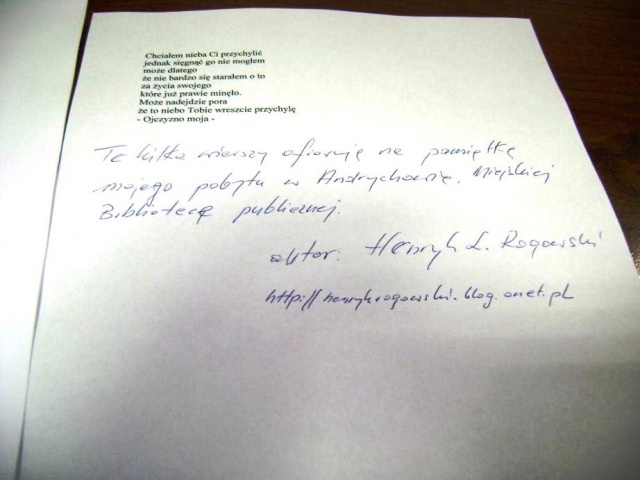 Chciałem nieba Ci przychylić
jednak sięgnąć go nie mogłem
może dlatego
że nie bardzo się starałem o to
za życia swojego
które już prawie minęło.
Może nadejdzie pora
że to niebo Tobie wreszcie przychylę
- Ojczyzno moja -
Te kilka wierszy ofiaruję na pamiątkę
mojego pobytu w Andrychowie, Miejskiej
Bibliotece publicznej.
autor: Henryk L. Rogowski
http://henrykrogowski.blog.onet.pl